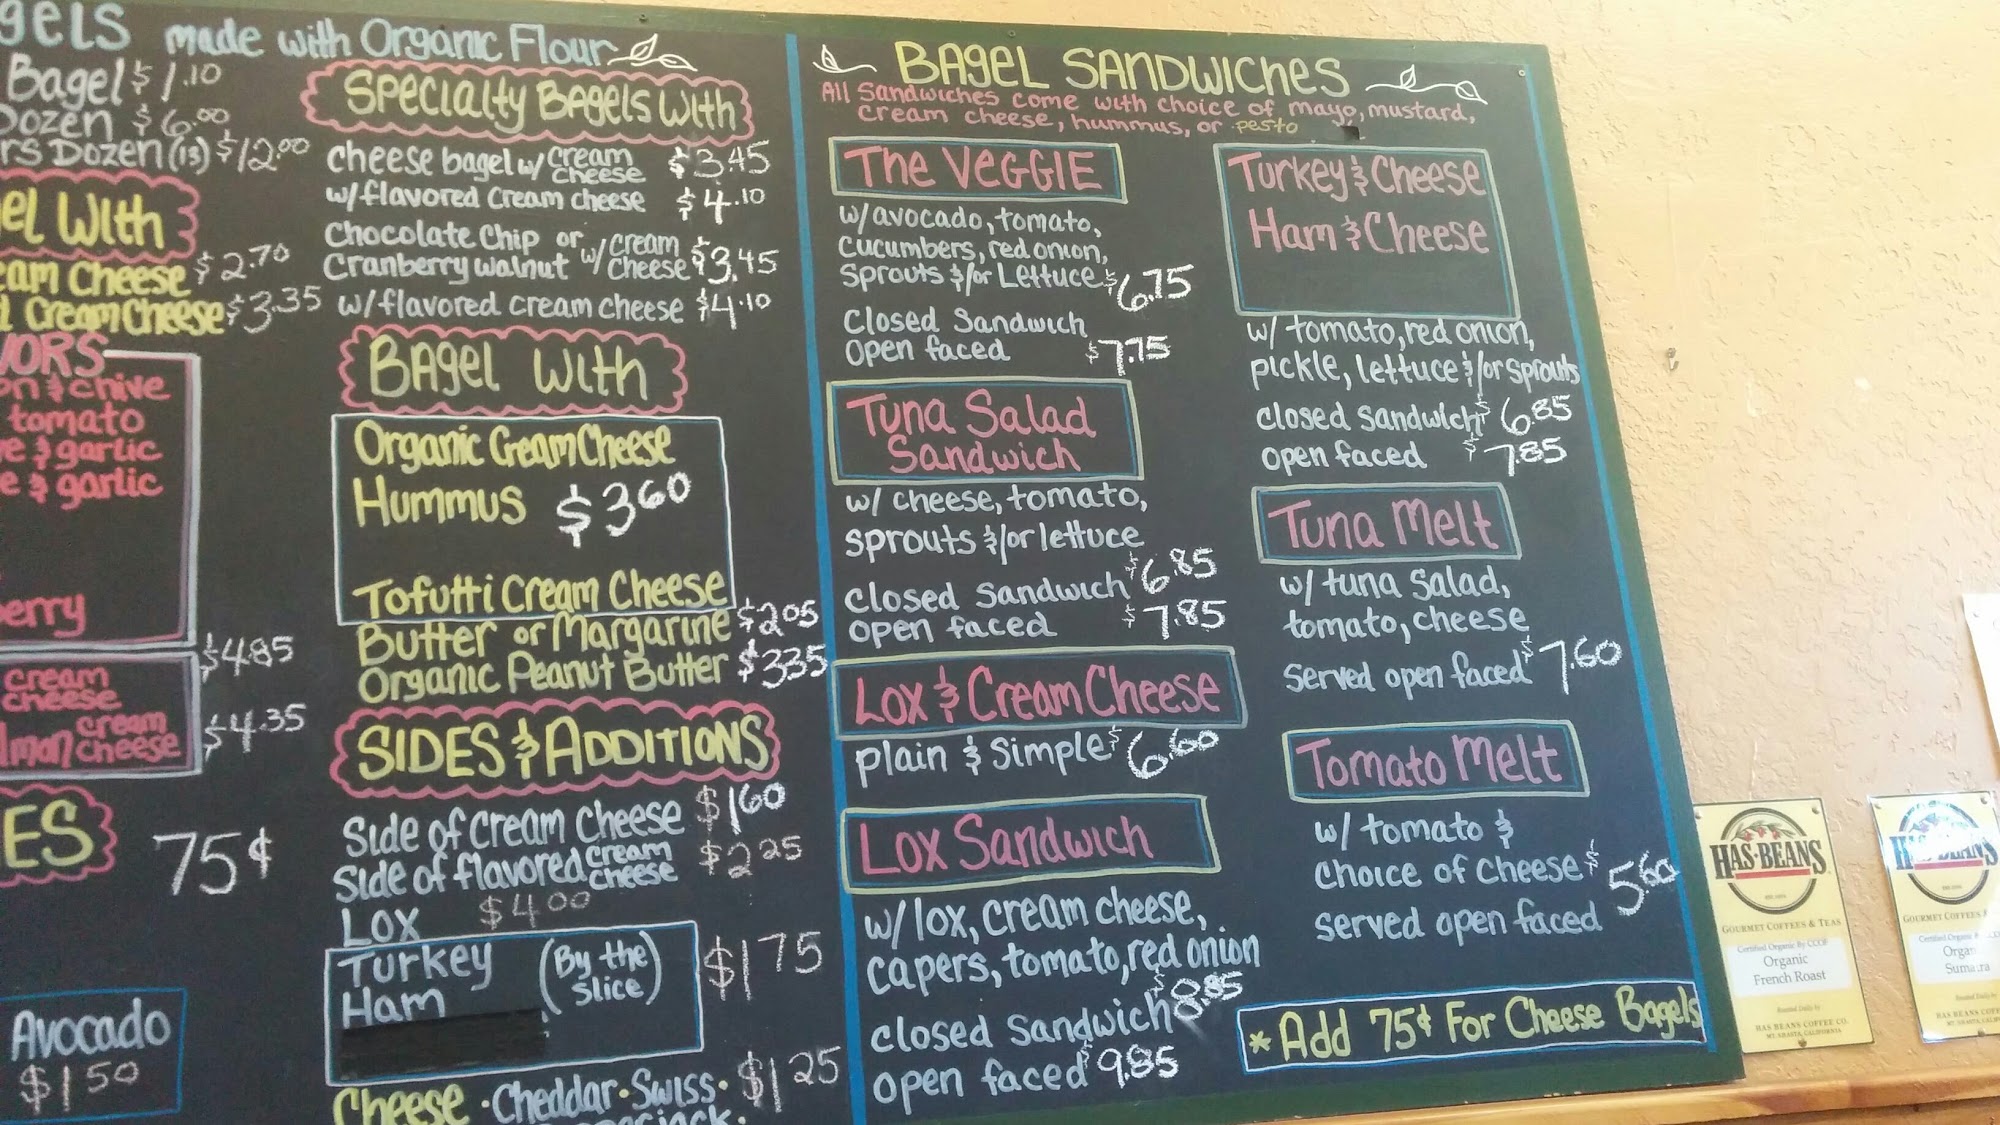 made with Organic Flour
Bagel $1.10
Dozen $6.00
Dozen (13) $12.00
With
Cheese $2.70
Cream Cheese $3.35
& chive
tomato
& garlic
& garlic
$4.85
cream
cheese
cream
cheese
$4.35
75¢
Avocado
$1.50
Specialty Bagels With
cheese bagel w/ cream cheese $3.45
w/flavored cream cheese $4.10
Chocolate Chip or
Cranberry walnut w/ cream cheese $3.45
w/flavored cream cheese $4.10
Bagel With
Organic Cream Cheese
Hummus $3.60
Tofutti Cream Cheese
Butter or Margarine $2.05
Organic Peanut Butter $3.35
Sides & Additions
Side of cream cheese $1.60
Side of flavored cream cheese $2.25
Lox $4.00
Turkey (By the Slice) $1.75
Ham
Cheese · Cheddar · Swiss · $1.25
Bagel Sandwiches
All Sandwiches come with choice of mayo, mustard,
cream cheese, hummus, or pesto
The Veggie
w/avocado, tomato,
cucumbers, red onion,
Sprouts &/or Lettuce $6.75
Closed Sandwich
open faced $7.75
Tuna Salad
Sandwich
w/ cheese, tomato,
sprouts &/or lettuce
closed Sandwich $6.85
open faced $7.85
Lox & Cream Cheese
plain & Simple $6.60
Lox Sandwich
w/ lox, cream cheese,
capers, tomato, red onion
closed Sandwich $8.85
open faced $9.85
Turkey & Cheese
Ham & Cheese
w/ tomato, red onion,
pickle, lettuce &/or sprouts
closed sandwich $6.85
open faced $7.85
Tuna Melt
w/ tuna salad,
tomato, cheese
served open faced $7.60
Tomato Melt
w/ tomato &
choice of cheese $5.60
served open faced
* Add 75¢ For Cheese Bagels
HAS·BEANS
GOURMET COFFEES & TEAS
Certified Organic By CCOF
Organic
French Roast
Roasted Daily by
HAS BEANS COFFEE CO.
MT. SHASTA, CALIFORNIA
HAS BEANS
GOURMET COFFEES